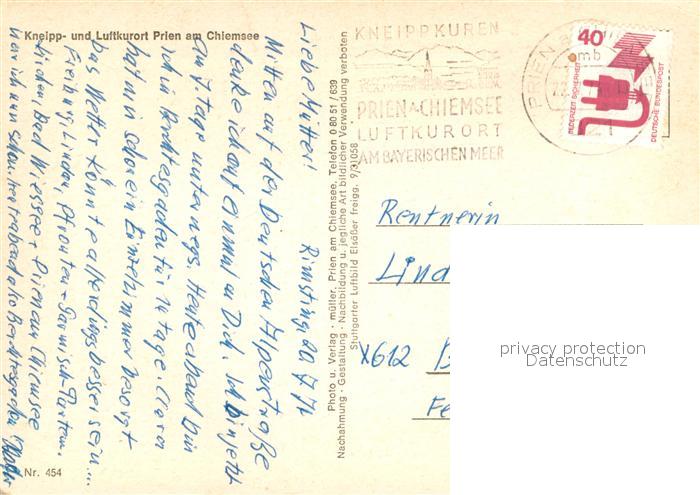 Kneipp- und Luftkurort Prien am Chiemsee
Rimsting, 20.7.74
Liebe Mutter!
Mitten auf der Deutschen Alpenstraße
denke ich auf einmal an Dich. Ich bin jetzt
auf 7 Tage unterwegs. Heute abend bin
ich in Berchtesgaden für 14 Tage. Clara
hat mir schon ein Einzelzimmer besorgt.
Das Wetter könnte allerdings besser sein...
Freiburg, Lindau, Pfronten + Garmisch-Parten.
kirchen, Bad Wiessee + Prien am Chiemsee
war ich nun schon. Heute abend also Berchtesgaden
Nr. 454
Photo u. Verlag · müller, Prien am Chiemsee, Telefon 0 80 51 / 639
Nachahmung · Gestaltung · Nachbildung u. jegliche Art bildlicher Verwendung verboten
Stuttgarter Luftbild Elsäßer freigg. 9/31058
KNEIPPKUREN
PRIEN A. CHIEMSEE
LUFTKURORT
AM BAYERISCHEN MEER
PRIEN
mb
21
40
JEDERZEIT SICHERHEIT
DEUTSCHE BUNDESPOST
Rentnerin
Lind
X612
Fe
privacy protection
Datenschutz